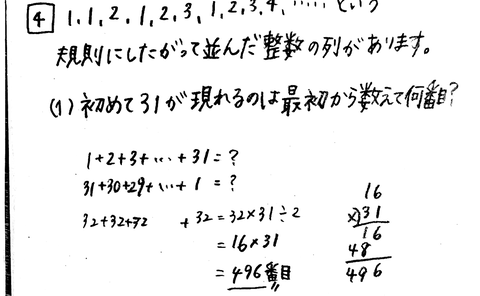 4 1, 1, 2, 1, 2, 3, 1, 2, 3, 4, …… という
規則にしたがって並んだ整数の列があります。
(1) 初めて31が現れるのは最初から数えて何番目?
1+2+3+…+31=?
31+30+29+…+1=?
32+32+32 +32=32×31÷2
=16×31
=496番目
16
×)31
16
48
496